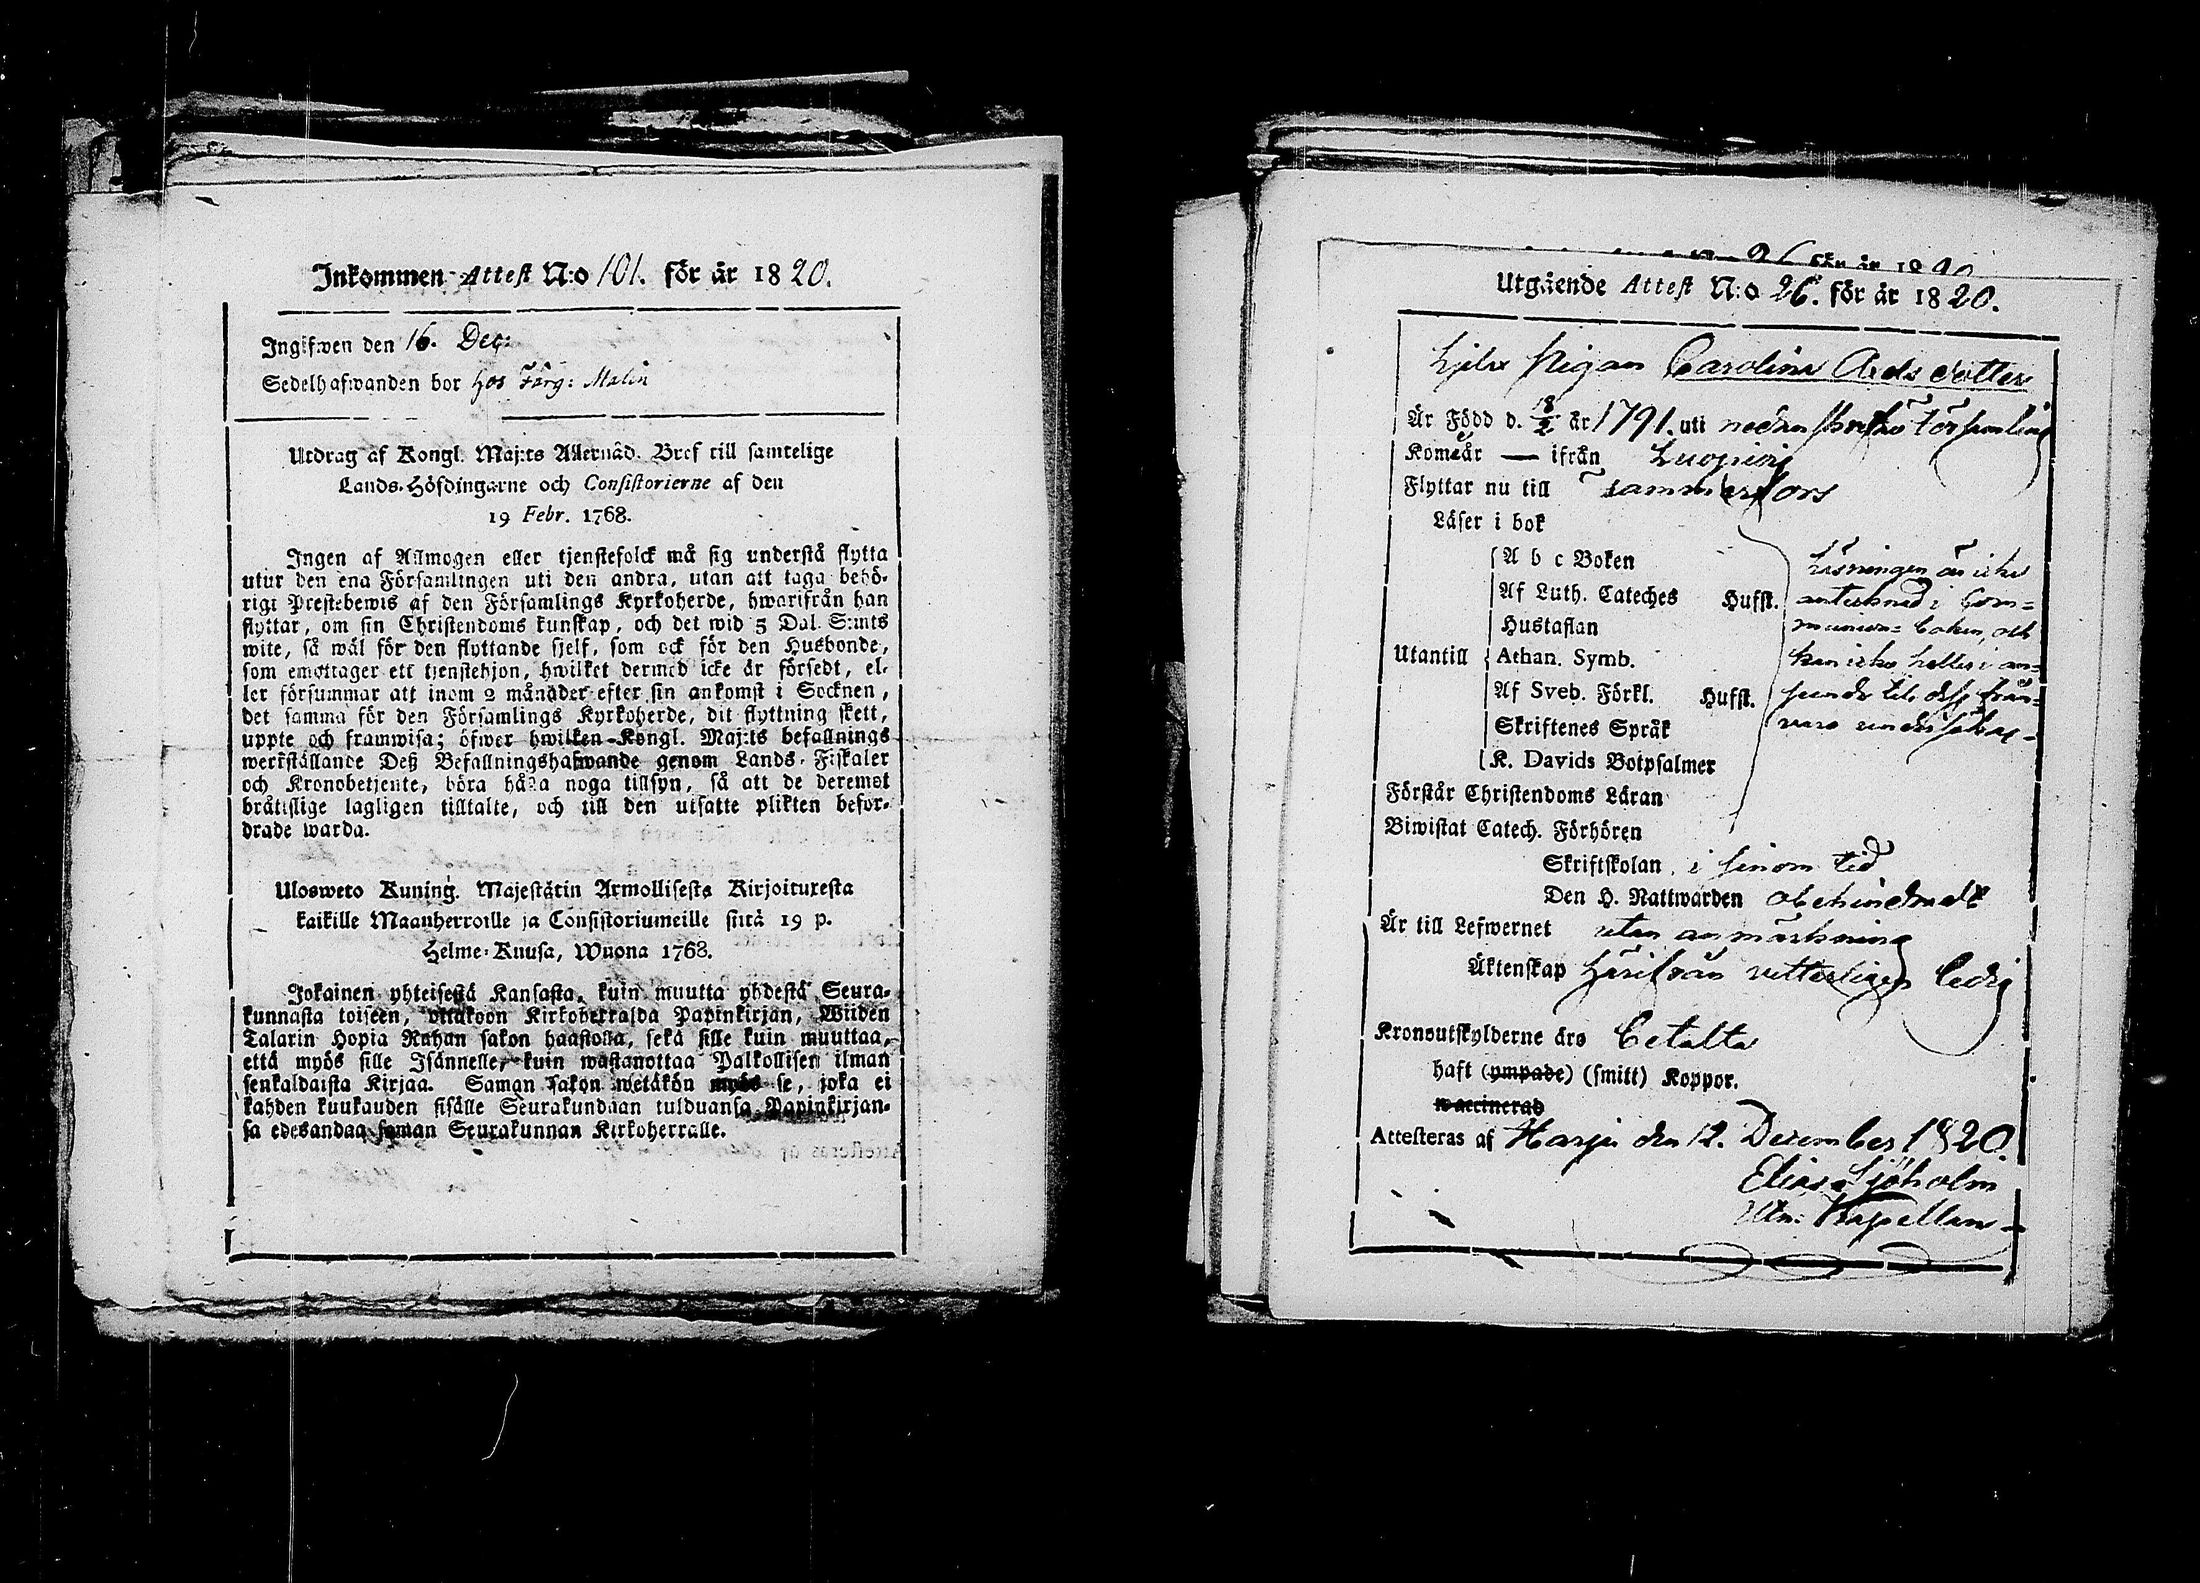 Inkommen Attest N:o 101. för år 1820.
Ingifwen den 16. Dec:
Sedelhafwanden bor hos Färg: Malin
Utdrag af Kongl. Maj:ts Allernåd. Bref till samtelige
Lands-Höfdingarne och Consistorierne af den
19 Febr. 1768.
Ingen af Allmogen eller tjenstefolck må sig understå flytta
utur den ena Församlingen uti den andra, utan att taga behö-
rigt Prestebewis af den Församlings Kyrkoherde, hwarifrån han
flyttar, om sin Christendoms kunskap, och det wid 5 Dal. S:mts
wite, så wäl för den flyttande sjelf, som ock för den Husbonde,
som emottager ett tjenstehjon, hwilket dermed icke är försedt, el-
ler försummar att inom 2 månader efter sin ankomst i Socknen,
det samma för den Församlings Kyrkoherde, dit flyttning skett,
uppte och framwisa; öfwer hwilken Kongl. Maj:ts befallnings
werkställande Deß Befallningshafwande genom Lands-Fiskaler
och Kronobetjente, böra hålla noga tillsyn, så att de deremot
bråtislige lagligen tilltalte, och till den utsatte plikten befor-
drade warda.
Ulosweto Kuning. Majestätin Armollisesta Kirjoituxesta
kaikille Maanherroille ja Consistoriumeille siitä 19 p.
Helme-Kuusa, Wuona 1768.
Jokainen yhteisestä Kansasta, kuin muutta yhdestä Seura-
kunnasta toiseen, ottakoon Kirkoherralda Papinkirjan, Wiiden
Talarin Hopia Rahan sakon haastolla, sekä sille kuin muuttaa,
että myös sille Isännelle, kuin wastanottaa Palkollisen ilman
senkaldaista Kirjaa. Saman sakon wetäkön myös se, joka ei
kahden kuukauden sisälle Seurakundaan tulduansa Papinkirjan-
sa edesandaa saman Seurakunnan Kirkoherralle.
Utgående Attest N:o 26. för år 1820.
Pigan Carolina Ands dotter
Är Född d. 8/2 år 1791. uti församling
Kom år — ifrån Luopiois
Flyttar nu till Tammerfors
Läser i bok
A b c Boken Läsningen är icke
Af Luth. Cateches Hufst. antecknad i Com-
Hustaflan munion-boken, och
Utantill Athan. Symb. kan icke heller i an-
Af Sveb. Förkl. Hufst. seende til dess från-
Skriftenes Språk varo undersökas
K. Davids Botpsalmer
Förstår Christendoms Läran
Biwistat Catech. Förhören
Skriftskolan i sinom tid
Den H. Nattwarden obehindradt
Är till Lefwernet utan anmärkning
Äktenskap härifrån vetterligen ledig
Kronoutskylderne äro betalta
haft (ympade) (smitt) Koppor.
waccinerad
Attesteras af Harju den 12. December 1820.
Elias Sjöholm
Capellan